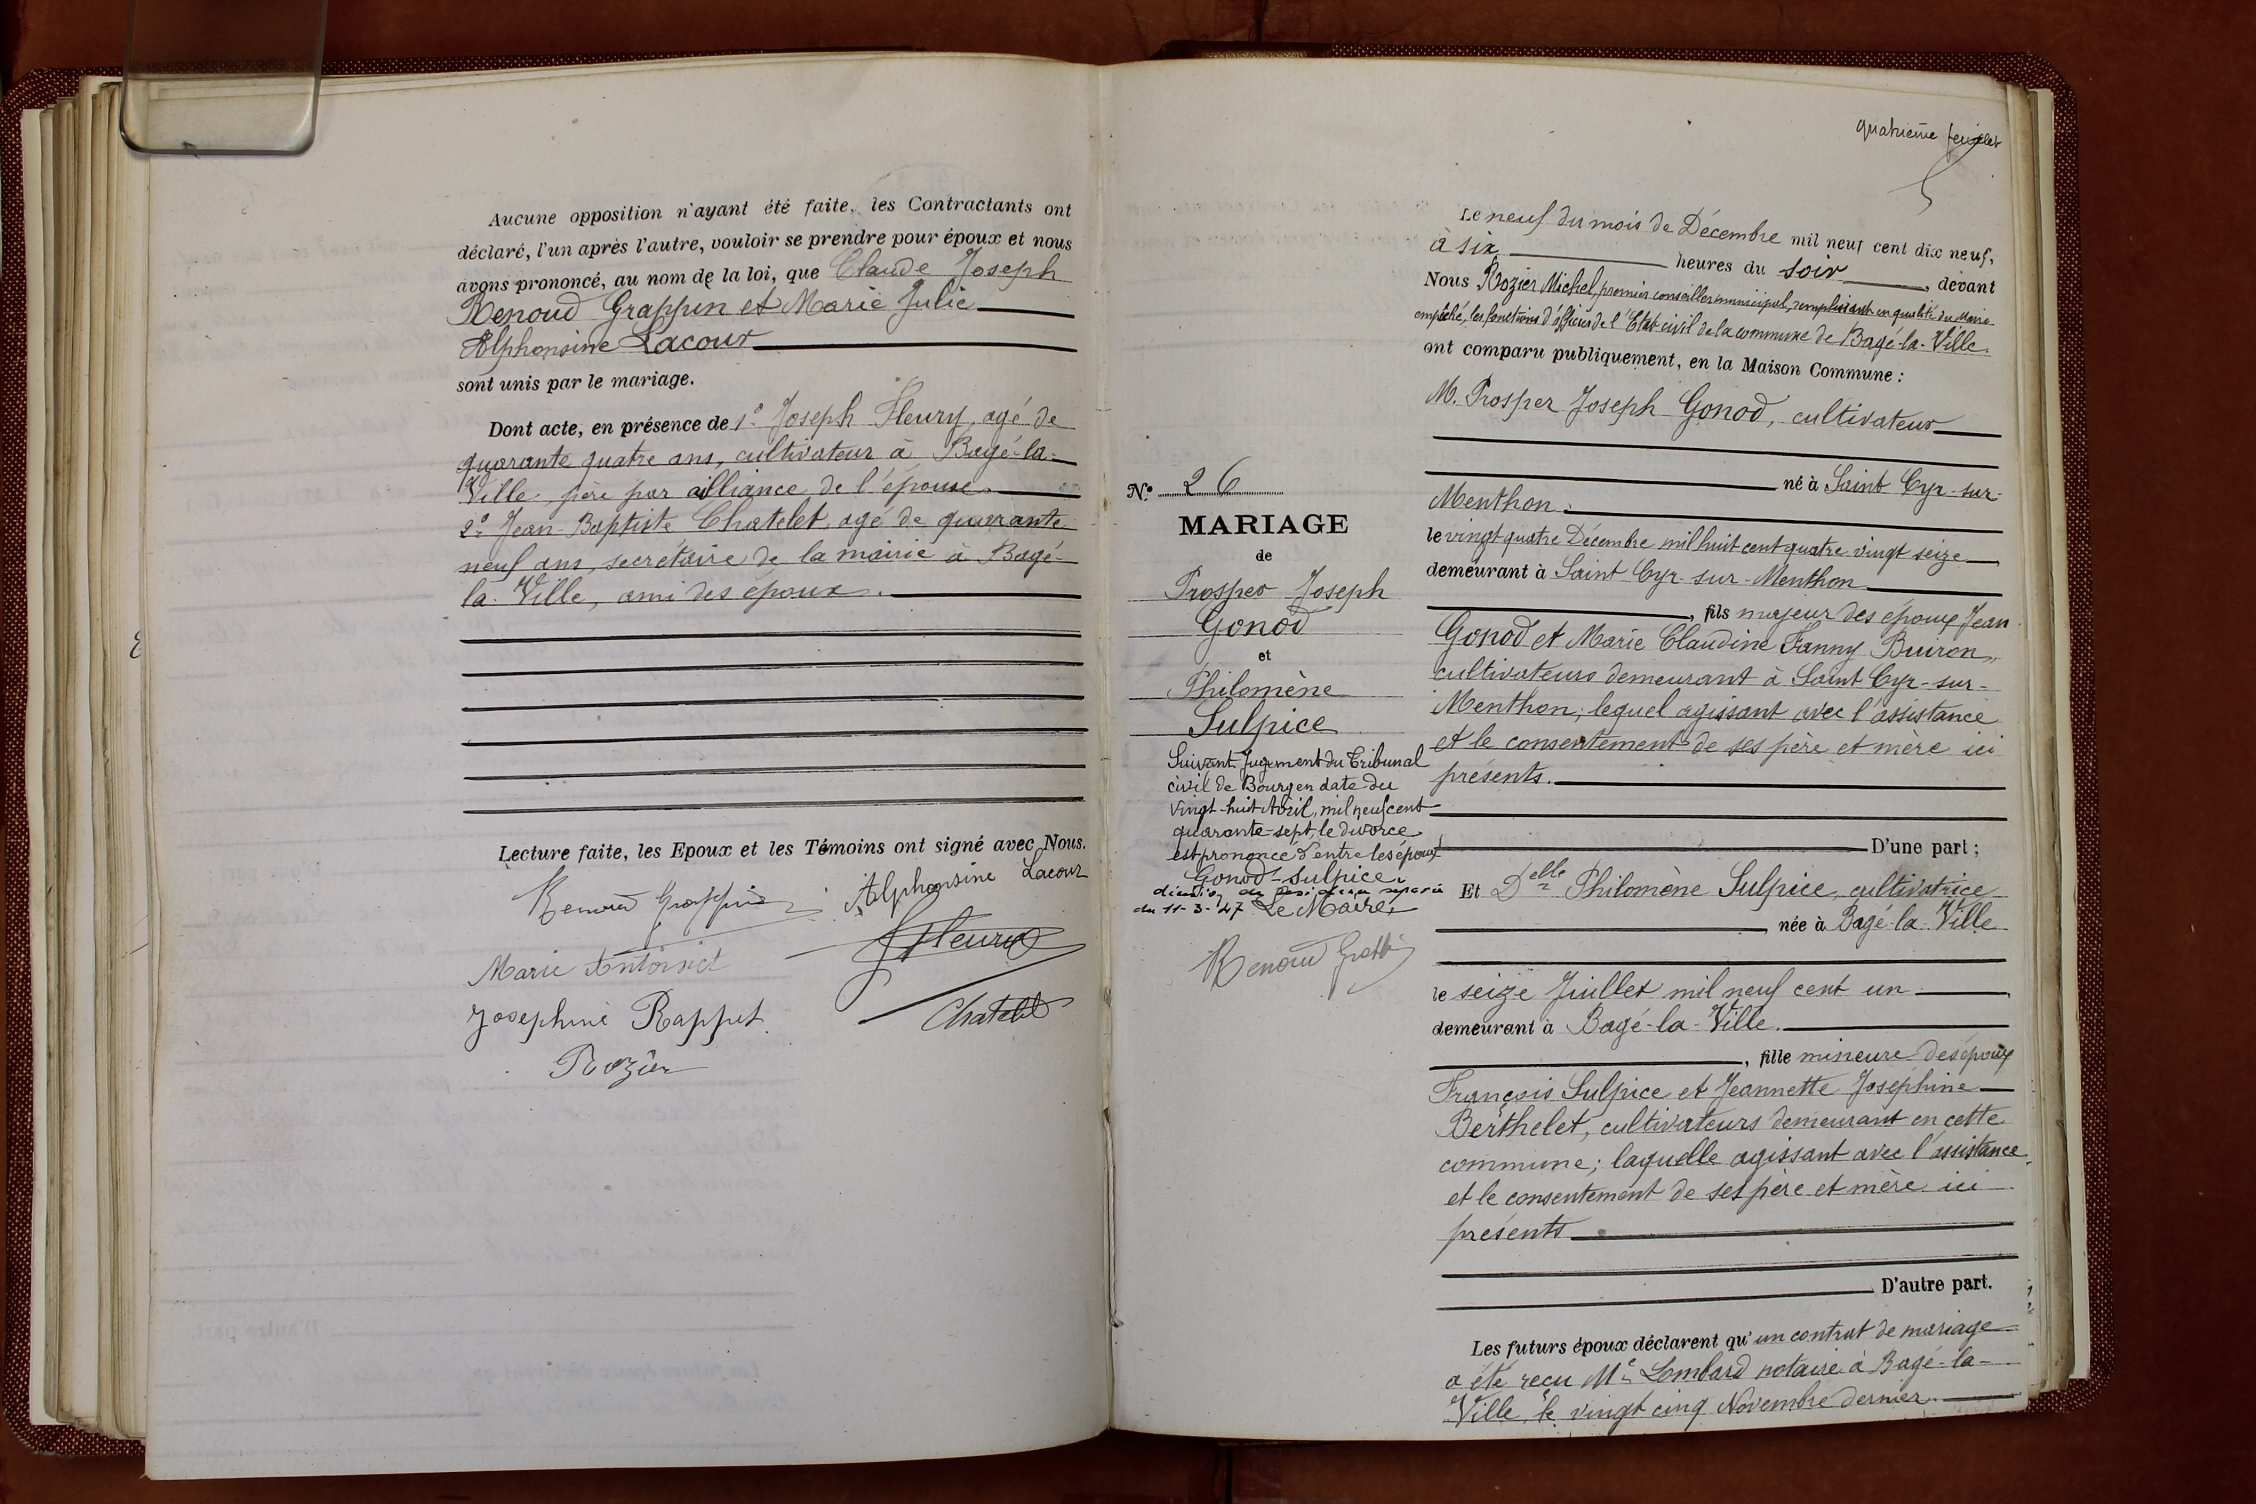 Aucune opposition n'ayant été faite, les Contractants ont
déclaré, l'un après l'autre, vouloir se prendre pour époux et nous
avons prononcé, au nom de la loi, que Claude Joseph
Renoud Grappin et Marie Julie
Alphonsine Lacour
sont unis par le mariage.
Dont acte, en présence de 1° Joseph Fleury, agé de
quarante quatre ans, cultivateur à Bagé-la-
Ville, père par alliance de l'épouse
2° Jean-Baptiste Chatelet, agé de quarante
neuf ans, secrétaire de la mairie à Bagé-
la-Ville, ami des époux.
Lecture faite, les Epoux et les Témoins ont signé avec Nous.
Renoud Grappin
Alphonsine Lacour
J Fleury
Marie Antoinet
Josephine Rappet
Chatelet
Rozier
quatrième feuillet
N° 26
MARIAGE
de
Prosper Joseph
Gonod
et
Philomène
Sulpice
Suivant Jugement du Tribunal
civil de Bourg en date du
vingt-huit Avril, mil neuf cent
quarante-sept, le divorce
est prononcé d'entre les époux
Gonod-Sulpice.
du 11-3-47 Le Maire,
Renoud Grappin
Le neuf du mois de Décembre mil neuf cent dix neuf,
à six heures du soir, devant
Nous Rozier Michel, premier conseiller municipal, remplissant en qualité du Maire
empêché, les fonctions d'officier de l'Etat civil de la commune de Bagé-la-Ville
ont comparu publiquement, en la Maison Commune :
M. Prosper Joseph Gonod, cultivateur
né à Saint Cyr-sur-
Menthon
le vingt quatre Décembre mil huit cent quatre vingt seize
demeurant à Saint Cyr-sur-Menthon
, fils majeur des époux Jean
Gonod et Marie Claudine Fanny Buiron,
cultivateurs demeurant à Saint Cyr-sur-
Menthon; lequel agissant avec l'assistance
et le consentement de ses père et mère ici
présents.
D'une part ;
Et Delle Philomène Sulpice, cultivatrice
née à Bagé-la-Ville
le seize Juillet mil neuf cent un
demeurant à Bagé-la-Ville.
, fille mineure des époux
François Sulpice et Jeannette Joséphine
Berthelet, cultivateurs demeurant en cette
commune; laquelle agissant avec l'assistance
et le consentement de ses père et mère ici
présents
D'autre part.
Les futurs époux déclarent qu'un contrat de mariage
a été reçu Me Lombard notaire à Bagé-la-
Ville, le vingt cinq Novembre dernier.